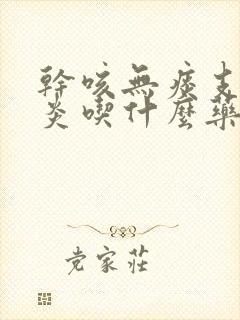 幹咳無痰支
炎喫什麼藥
党家莊